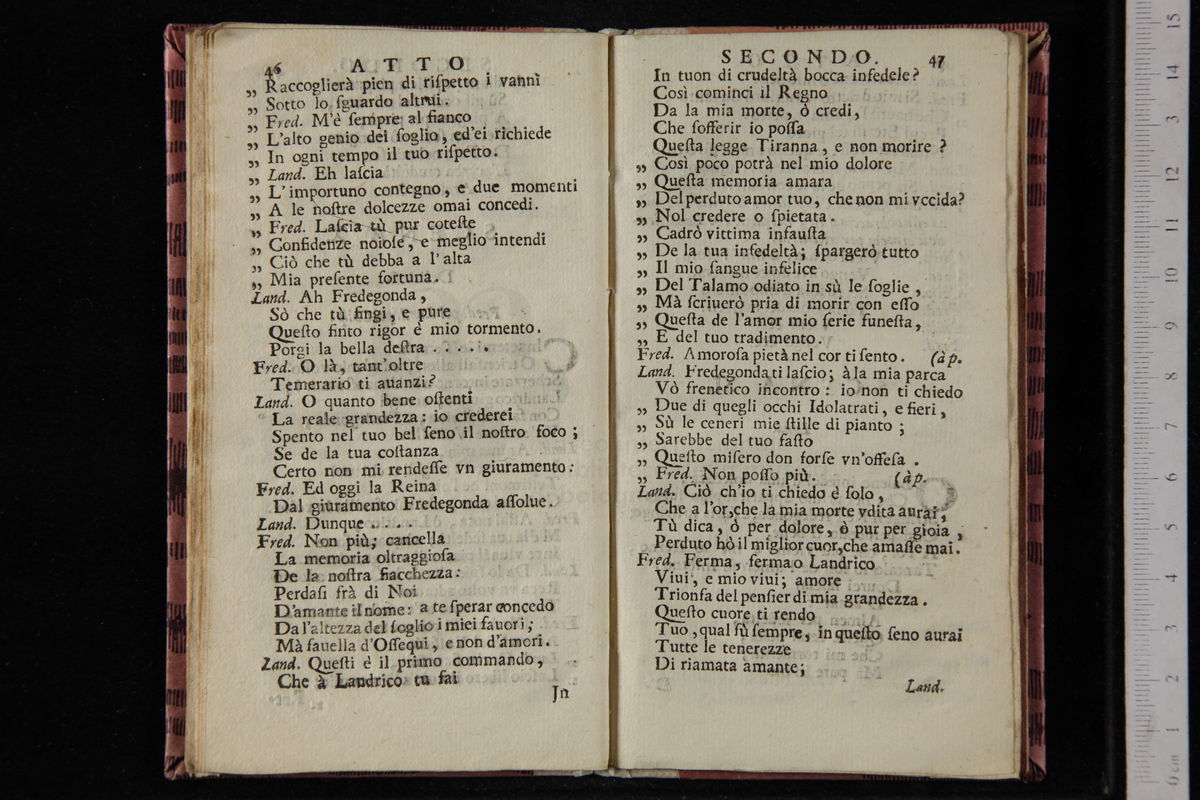 46 ATTO
„ Raccoglierà pien di riſpetto i vanni
„ Sotto lo ſguardo altrui.
„ Fred. M'è ſempre al fianco
„ L'alto genio del ſoglio, ed'ei richiede
„ In ogni tempo il tuo riſpetto.
„ Land. Eh laſcia
„ L'importuno contegno, e due momenti
„ A le noſtre dolcezze omai concedi.
„ Fred. Laſcia tù pur coteſte
„ Confidenze noioſe, e meglio intendi
„ Ciò che tù debba a l'alta
„ Mia preſente fortuna.
Land. Ah Fredegonda,
Sò che tù fingi, e pure
Queſto finto rigor è mio tormento.
Porgi la bella deſtra . . . . .
Fred. O là, tant'oltre
Temerario ti auanzi?
Land. O quanto bene oſtenti
La reale grandezza: io crederei
Spento nel tuo bel ſeno il noſtro foco;
Se de la tua coſtanza
Certo non mi rendeſſe vn giuramento:
Fred. Ed oggi la Reina
Dal giuramento Fredegonda aſſolue.
Land. Dunque . . . .
Fred. Non più; cancella
La memoria oltraggioſa
De la noſtra fiacchezza:
Perdaſi frà di Noi
D'amante il nome: a te ſperar concedo
Da l'altezza del ſoglio i miei fauori;
Mà fauella d'Oſſequi, e non d'amori.
Land. Queſti è il primo commando,
Che à Landrico tu fai
In
SECONDO. 47
In tuon di crudeltà bocca infedele?
Così cominci il Regno
Da la mia morte, ò credi,
Che ſofferir io poſſa
Queſta legge Tiranna, e non morire?
„ Così poco potrà nel mio dolore
„ Queſta memoria amara
„ Del perduto amor tuo, che non mi vccida?
„ Nol credere o ſpietata.
„ Cadrò vittima infauſta
„ De la tua infedeltà; ſpargerò tutto
„ Il mio ſangue infelice
„ Del Talamo odiato in sù le ſoglie,
„ Mà ſcriuerò pria di morir con eſſo
„ Queſta de l'amor mio ſerie funeſta,
„ E del tuo tradimento.
Fred. Amoroſa pietà nel cor ti ſento. (à p.
Land. Fredegonda ti laſcio; à la mia parca
Vò frenetico incontro: io non ti chiedo
„ Due di quegli occhi Idolatrati, e fieri,
„ Sù le ceneri mie ſtille di pianto;
„ Sarebbe del tuo faſto
„ Queſto miſero don forſe vn'offeſa.
„ Fred. Non poſſo più. (à p.
Land. Ciò ch'io ti chiedo è ſolo,
Che a l'or, che la mia morte vdita aurai,
Tù dica, ò per dolore, ò pur per gioia,
Perduto hò il miglior cuor, che amaſſe mai.
Fred. Ferma, ferma o Landrico
Viui, e mio viui; amore
Trionfa del penſier di mia grandezza.
Queſto cuore ti rendo
Tuo, qual fù ſempre, in queſto ſeno aurai
Tutte le tenerezze
Di riamata amante;
Land.
15
14
13
12
11
10
9
8
7
6
5
4
3
2
1
0 cm